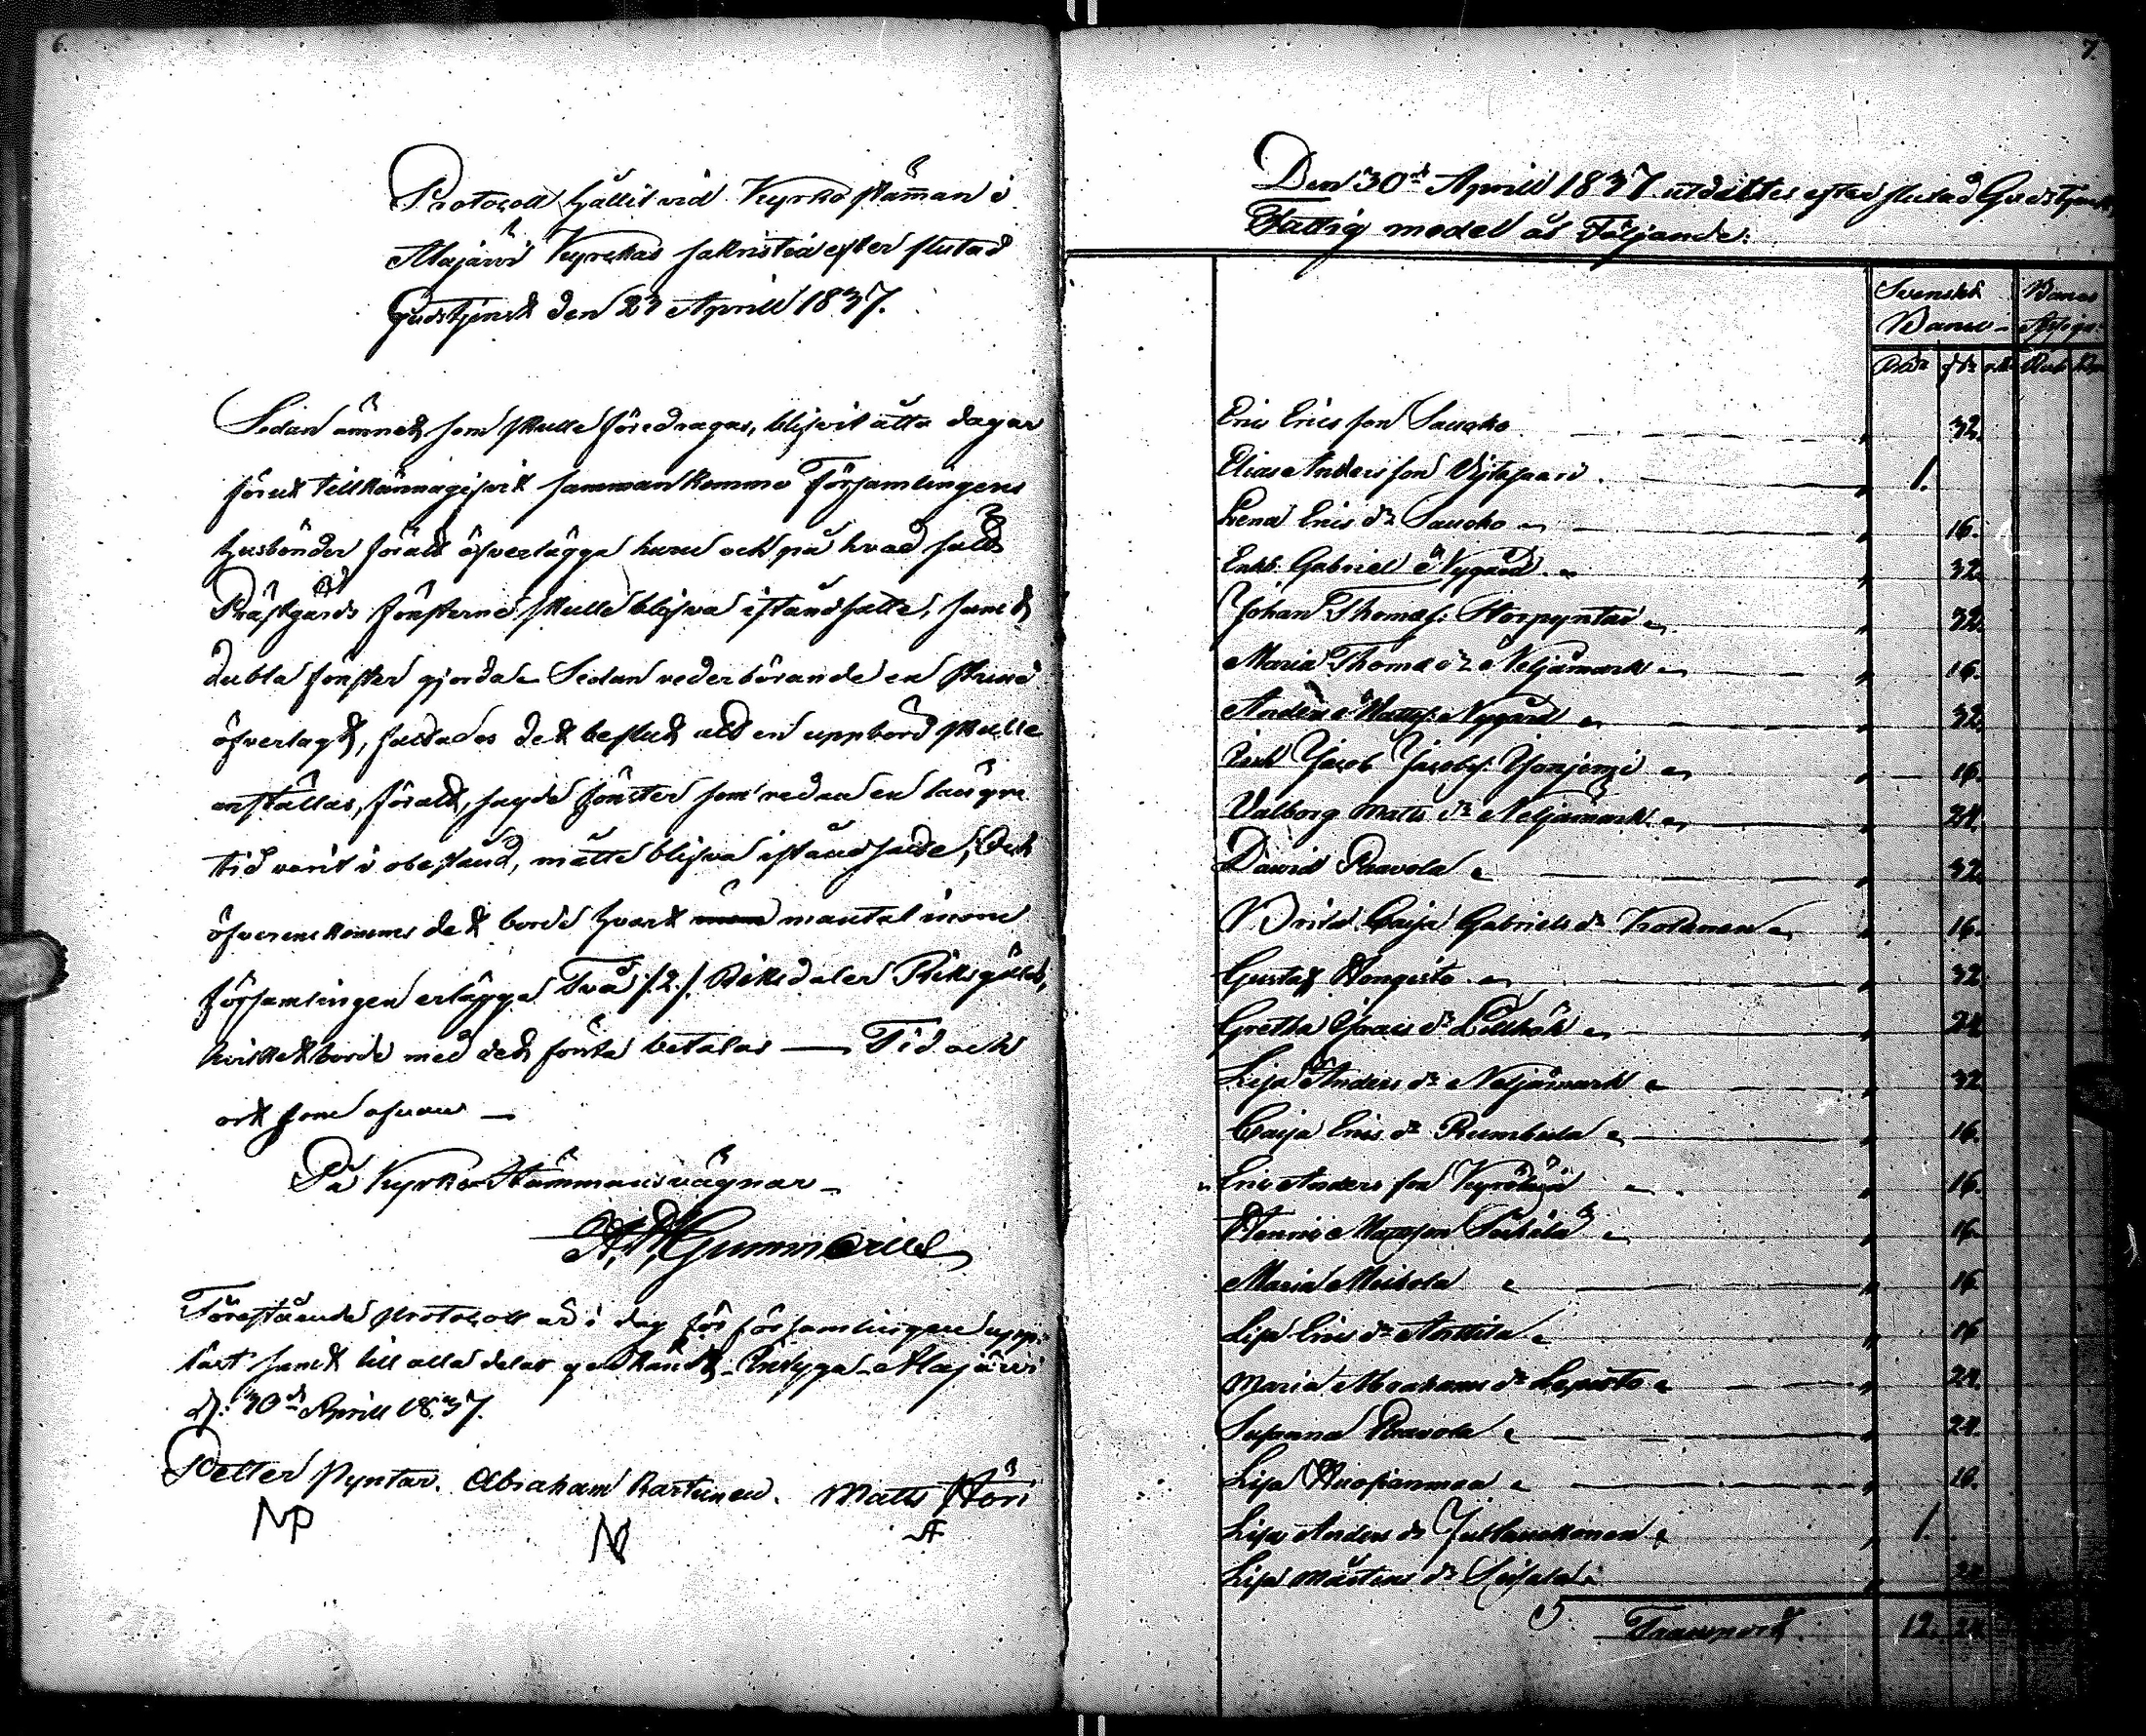 6.
Protocoll hållit vid Kyrko stämman i
Alajärvi Kyrckas sakristia efter slutad
Gudstjenst den 23 Aprill 1837.
Sedan ämnet som skulle föredragas, blifvit åtta dagar
förut tillkännagifvit sammankomme Församlingens
husbönder föratt öfverlägga huru och på hvad sätt
Prästgårds fönsterne skulle blifva iståndsatte, samt
dubla fönster gjorda. Sedan vederbörande en stund
öfverlagt, fattades det beslut att en uppbörd skulle
anställas, föratt, sagde fönster som redan en längre
tid varit i obestånd, måtte blifva iståndsatte, Och
öfverenskommes det borde hvart mantal inom
församlingen erlägga Två /:2:/ Riksdaler Riksgälds,
hvilket borde med det första betalas — Tid och
ort som ofvan —
På Kyrko Stämmans vägnar
Gummerus
Förestående protocoll är i dag för församlingen upp-
läst samt till alla delar godkändt, Betygar Alajärvi
d: 30d Aprill 1837.
Petter Pyntar. Abraham Kartunen. Matts Hori
NP
N
7.
Den 30d Aprill 1837 utdeltes efter slutad Gudstjenst
Fattig medel åt Följande:
Svenskt Banco
Banco Assign:
Rdr sk rst Rub Kop
Eric Ericsson Saucko 32.
Elias Andersson Vijtasaari 1.
Lena Erics dr Saucko 16.
Enk. Gabriel Nygård 32.
Johan Thomas: Storpyntar 32.
Maria Thomæ dr Neljämark 16.
Anders Matts: Nygård 32.
Jacob Jacobs: 16.
Valborg Matts dr Neljämark 24.
David Paavola 32.
Brita Caija Gabriels dr 16.
Gustaf Hongisto 32
Gretha dr Lillhök 24
Lisa Anders dr Neljämark 32
Caija Erics dr Rumbula 16.
Eric Andersson 16.
Hennric Mattsson 16.
Maria Meihola 16
Lisa Erics dr Anttila 16
Maria Abrahams dr Lepistö 24.
Susanna Paavola 24.
Lisa 16.
Lisa Anders dr 1.
Lisa Mårtens dr
Transport 12. 24